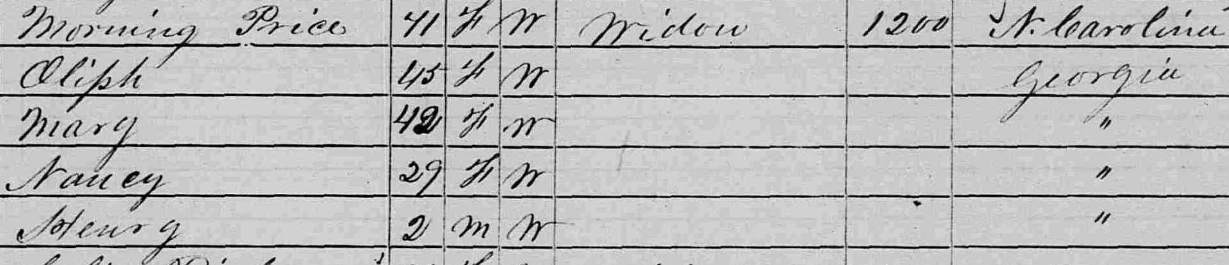 Morning Price 71 F W Widow 1200 N. Carolina
Oliph 45 F W Georgia
Mary 42 F W "
Nancy 29 F W "
Henry 2 M W "